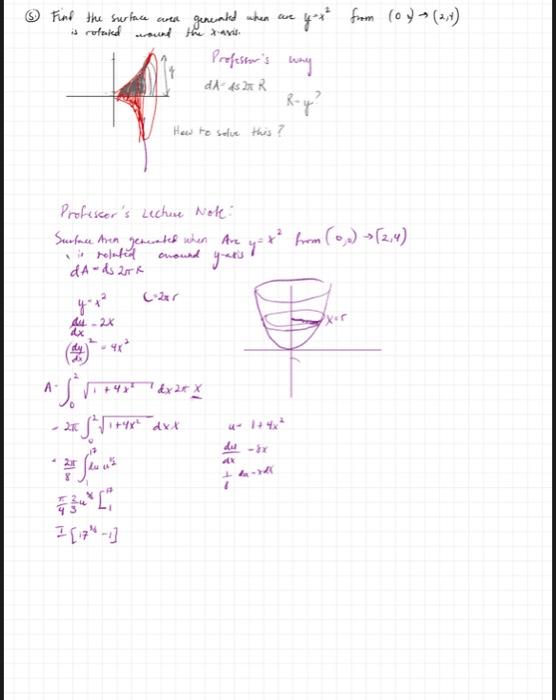 ⑤ Find the surface area generated when arc y=x² from (0,0)→(2,4)
is rotated around the x-axis.
Professor's way
4
dA=ds2πR
R=y?
How to solve this?
Professor's Lecture Note:
Surface Area generated when Arc y=x² from (0,0)→(2,4)
is rotated around y-axis
dA=ds2πR
y=x² C=2πr
dy/dx=2x
(dy/dx)²=4x²
x=r
A=∫₀² √1+4x² dx2πx
=2π∫₀²√1+4x² dx x
u=1+4x²
du/dx=8x
=2π/8 ∫₁¹⁷ du u^½
π/4 2/3 u^3/2 [₁¹⁷
[17^3/2-1]